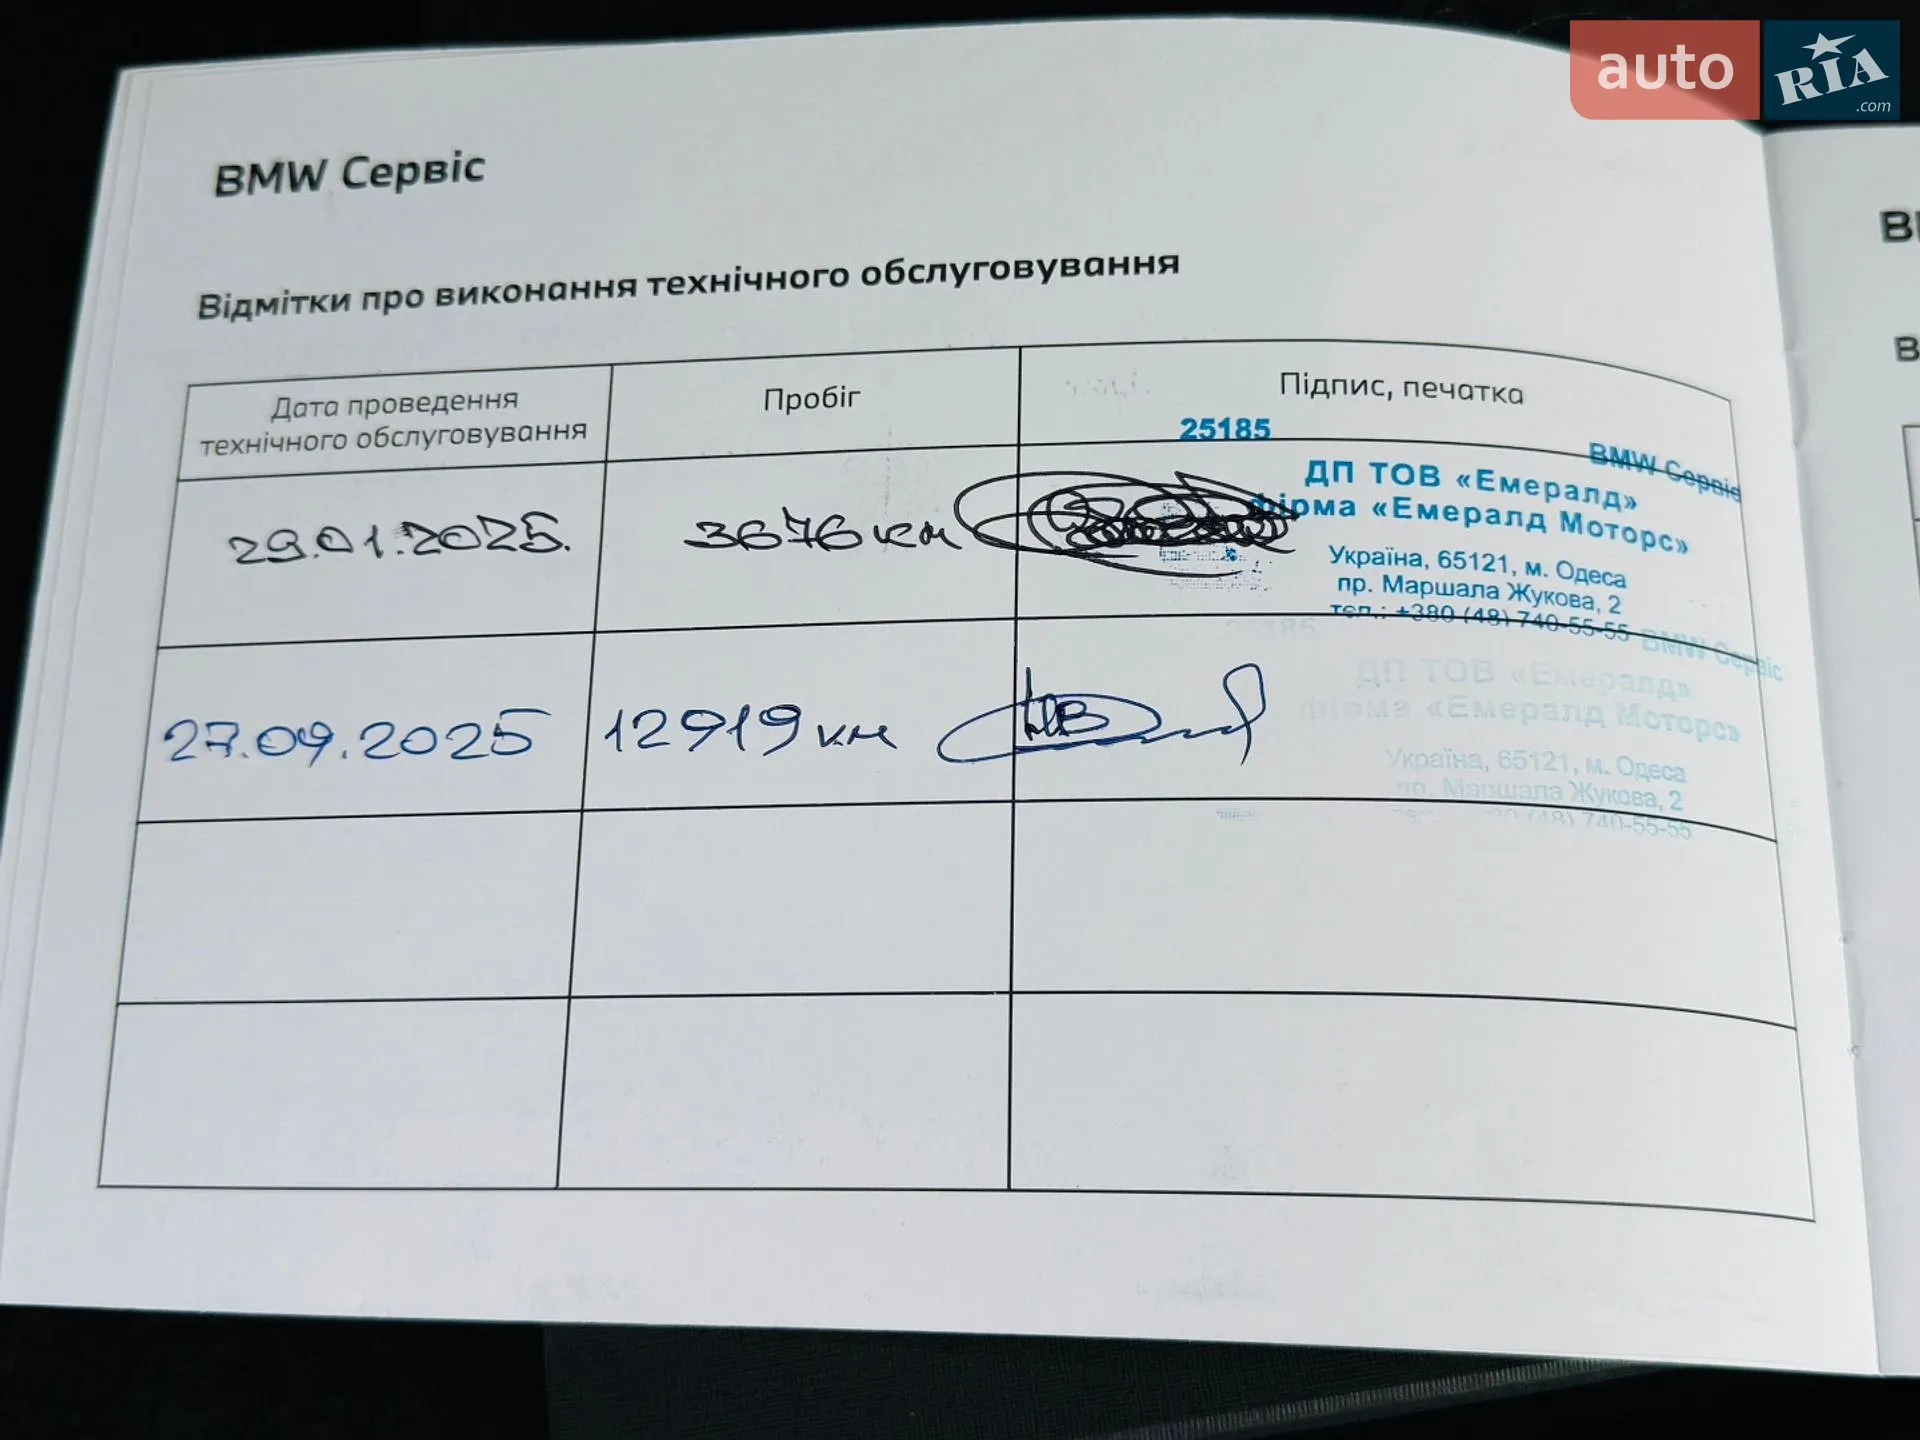 auto RIA .com
BMW Сервіс
Відмітки про виконання технічного обслуговування
Дата проведення
технічного обслуговування
Пробіг
Підпис, печатка
25185
BMW Сервіс
ДП ТОВ «Емералд»
фірма «Емералд Моторс»
Україна, 65121, м. Одеса
пр. Маршала Жукова, 2
тел.: +380 (48) 740-55-55
29.01.2025.
3676 км
25185
BMW Сервіс
ДП ТОВ «Емералд»
фірма «Емералд Моторс»
Україна, 65121, м. Одеса
пр. Маршала Жукова, 2
(48) 740-55-55
27.09.2025
12919 км